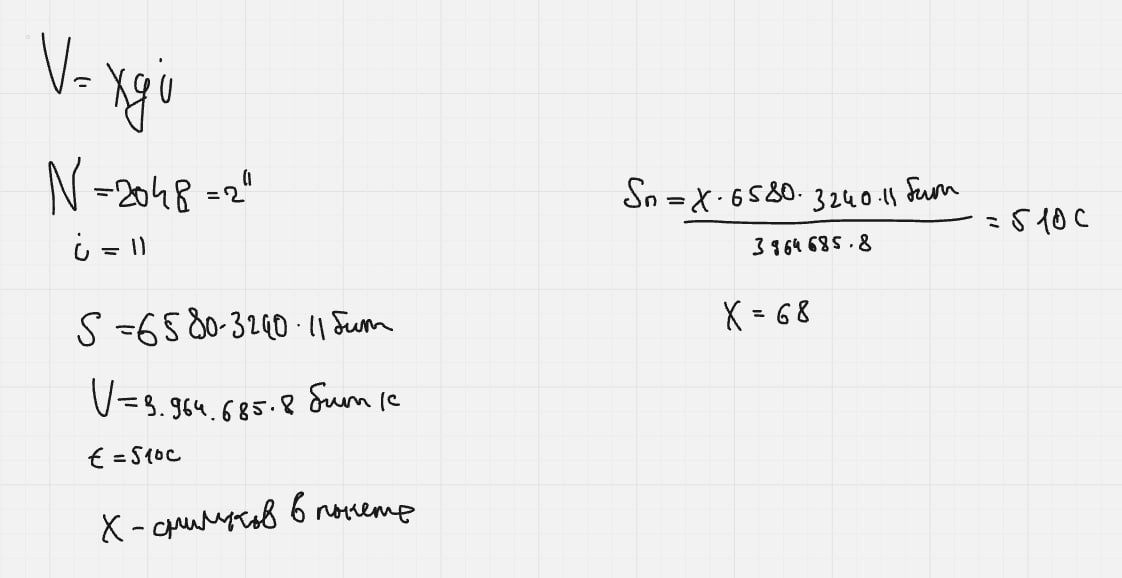 V = xyi
N = 2048 = 2¹¹
i = 11
S = 6580·3240·11 бит
V = 3.964.685·8 бит/с
t = 510с
X – снимков в пакете
Sп = X·6580·3240·11 бит / 3964685·8 = 510 с
X = 68